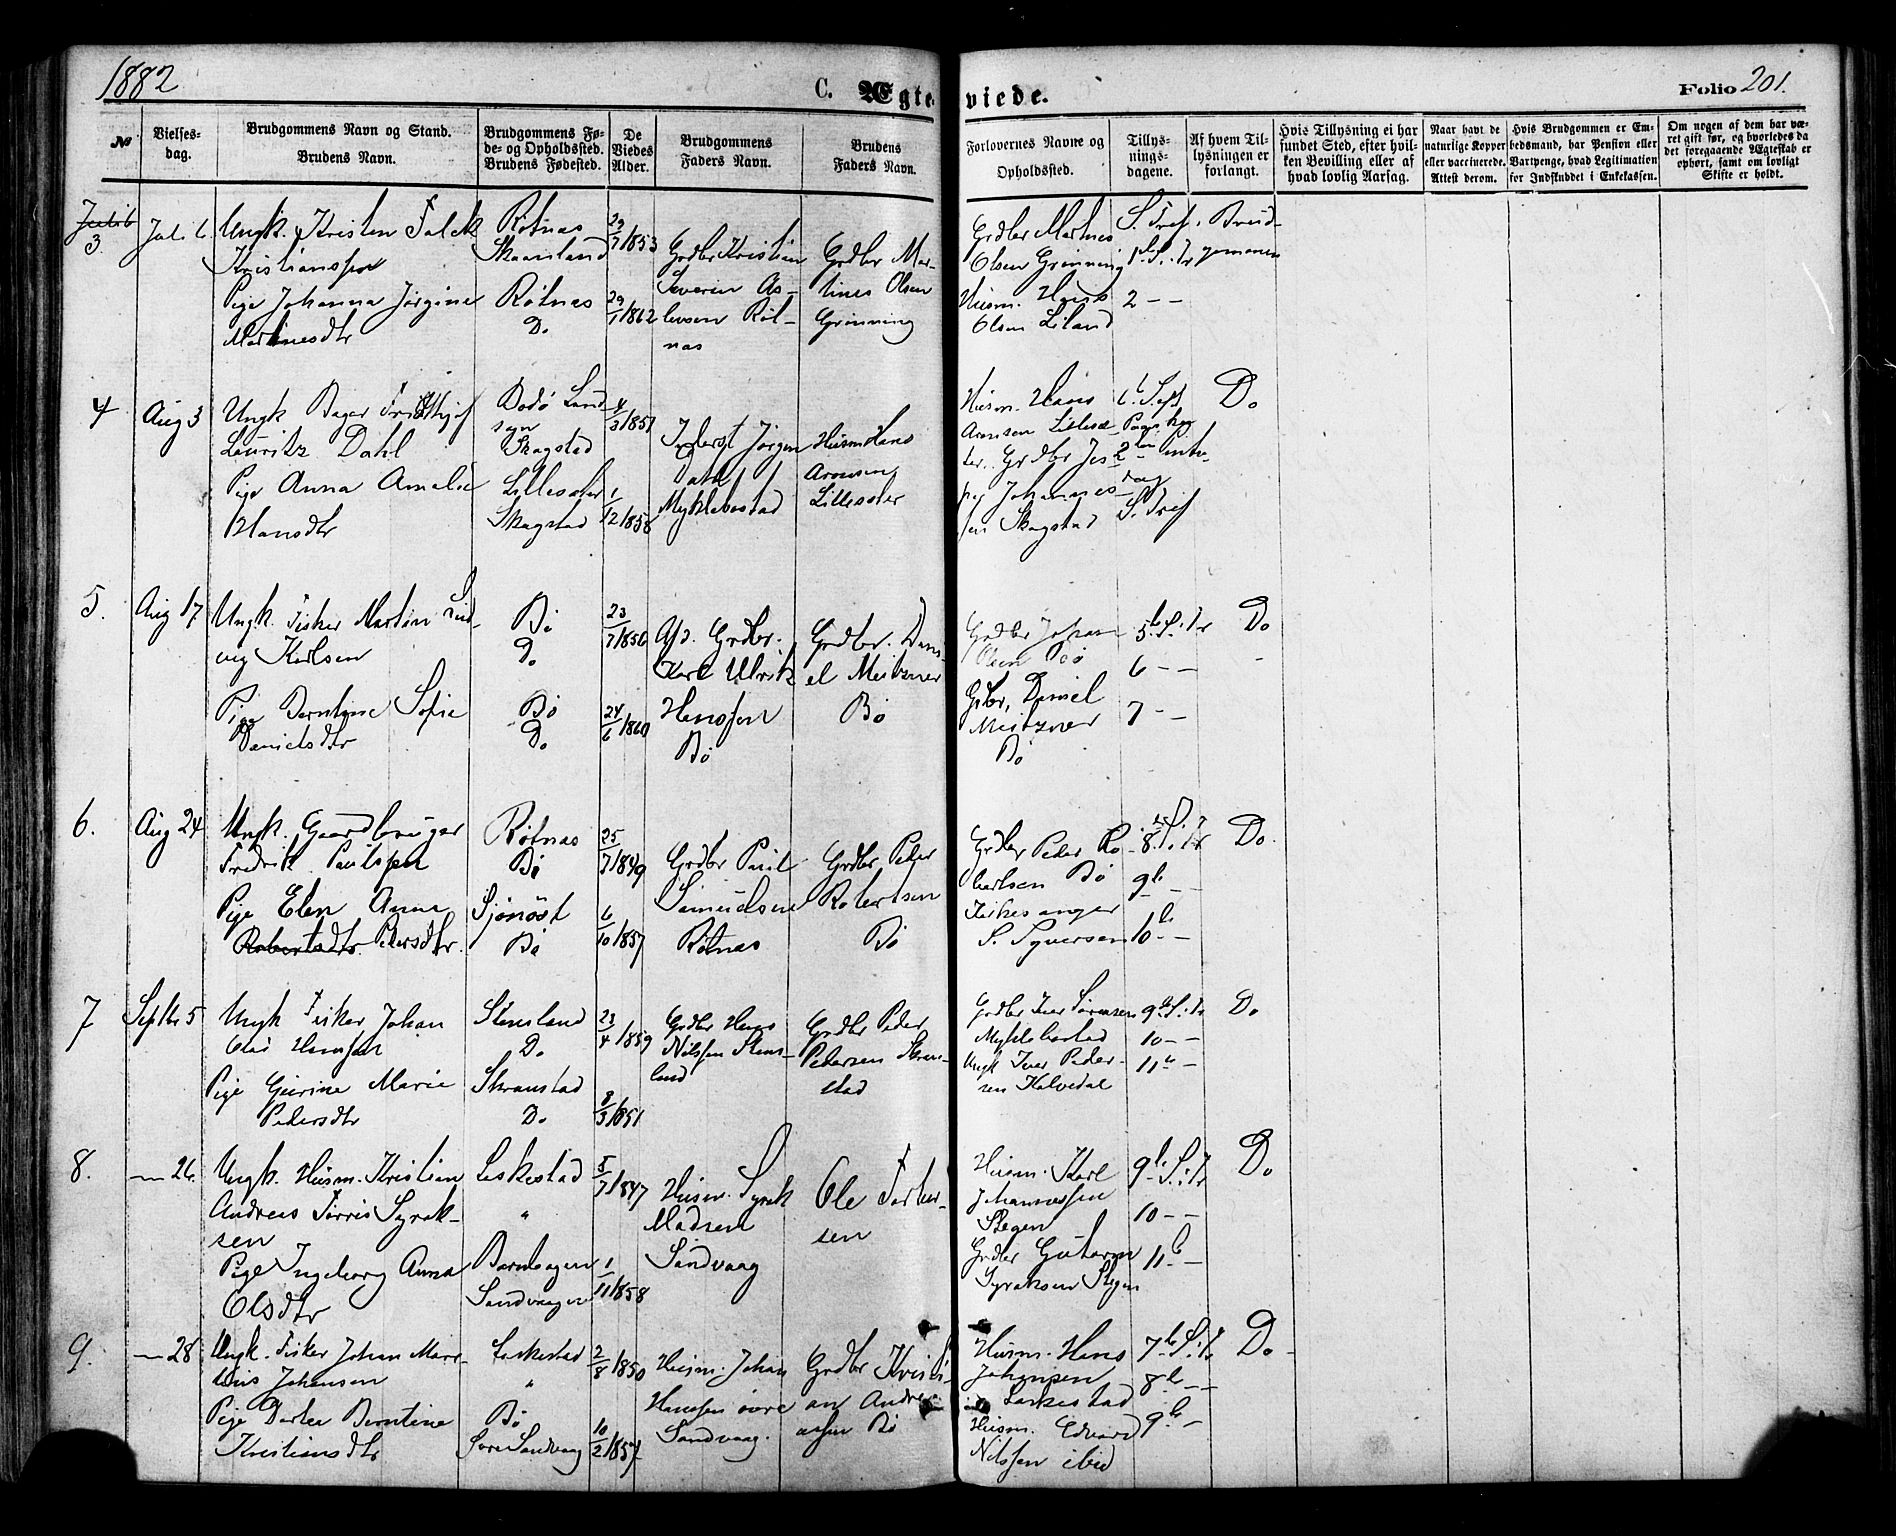 1882
C. Ægteviede.
Folio 201.
№
Vielses-
dag.
Brudgommens Navn og Stand.
Brudens Navn.
Brudgommens Fø-
de- og Opholdssted.
Brudens Fødested.
De
Viedes
Alder.
Brudgommens
Faders Navn.
Brudens
Faders Navn.
Forlovernes Navne og
Opholdssted.
Tillys-
nings-
dagene.
Af hvem Til-
lysningen er
forlangt.
Hvis Tillysning ei har
fundet Sted, efter hvil-
ken Bevilling eller af
hvad lovlig Aarsag.
Naar havt de
naturlige Kopper
eller vaccinerede.
Attest derom.
Hvis Brudgommen er Em-
bedsmand, har Pension eller
Vartpenge, hvad Legitimation
for Indskuddet i Enkekassen.
Om nogen af dem har væ-
ret gift før, og hvorledes da
det foregaaende Ægteskab er
ophørt, samt om lovligt
Skifte er holdt.
3.
Juli 6
Ungk. Kristen Falck
Kristianssen
Pige Johanna Jørgine
Martinesdtr
Røtnas
Skaansland
Røtnas
Do
29/7 1853
29/1 1862
Grdbr Kristian
Severin As-
lersen Røt-
nas
Grdbr Mar-
tines Olsen
Grønning
Grdbr Martines
Olsen Grønning
Husm. Hans
Olsen Liland
S. Tref.
1ste S. e. Tr
2 - -
Brud-
gommen
4
Aug 3
Ungk Bager Fridthjof
Lauritz Dahl
Pige Anna Amalie
Hansdtr
Bodø Land
sogn
Skagstad
Lillesæter
Skagstad
4/3 1851
1/12 1858
Jørgen
Dahl
Myklebostad
Husm Hans
Aronsen
Lillesæter
Husm. Hans
Aronsen Lillesæ-
ter. Grdbr Jes-
per Johannes-
sen Skagstad
2den Pintse-
dag
S. Tref
Do
5.
Aug 17
Ungk. Fisker Martin Lud-
vig Karlsen
Pige Berntine Sofie
Danielsdtr
Bø
Do
Bø
Do
23/7 1856
24/6 1860
Afd. Grdbr.
Karl Ulrik
Hanssen
Bø
Grdbr. Dani-
el Meitzner
Bø
Grdbr Johan
Olsen Bø
Grdbr. Daniel
Meitzner
Bø
5te S. e. Tr
6 - -
7 - -
Do
6.
Aug 24
Ungk. Gaardbruger
Fredrik Paulssen
Pige Elen Anna
Robertsdtr. Pedersdtr.
Røtnas
Bø
Sjønøst
Bø
25/7 1849
6/10 1857
Grdbr Paul
Samuelsen
Røtnas
Grdbr. Peder
Robertsen
Bø
Grdbr Peder Ro-
bertsen Bø
Kirkesanger
S. Syversen
8. S. e. Tr
9de - -
10de -
Do.
7
Septbr 5
Ungk Fisker Johan
Olai Hanssen
Pige Gurine Marie
Pedersdtr
Stensland
Do
Skranstad
Do
23/4 1859
8/3 1851
Grdbr Hans
Nilssen Stens-
land
Grdbr Peder
Pedersen Skran-
stad
Grdbr Iver Sørensen
Myklebostad
Ungk Iver Peder-
sen Kalvedal
9de S. e. Tr
10 - -
11te -
Do
8.
— 26
Ungk. Husm. Kristian
Andreas Tørris Syrak-
sen
Pige Ingeborg Anna
Olsdtr
Leskestad
"
Sandvaagen
5/7 1847
1/11 1858
Husm. Syrak
Madsen
Sandvaag
Ole
sen
Husm. Karl
Johannessen
Stegen
Grdbr Gutorm
Syraksen Stegen
9de S. e. Tr
10 - -
11te -
Do
9.
— 28
Ungk. Fisker Johan Mar-
tius Johansen
Pige Dorthea Berntine
Kristiansdtr
Laskestad
"
Bø
Søre Sandvaag
2/8 1850
10/2 1857
Husm. Johan
Hanssen øvre
Sandvaag.
Grdbr Kristi-
an Andre-
assen Bø
Husm. Hans
Johanssen
Laskestad
Husm. Edvard
Nilssen ibid
7de S. e. Tr
8de - -
9de -
Do